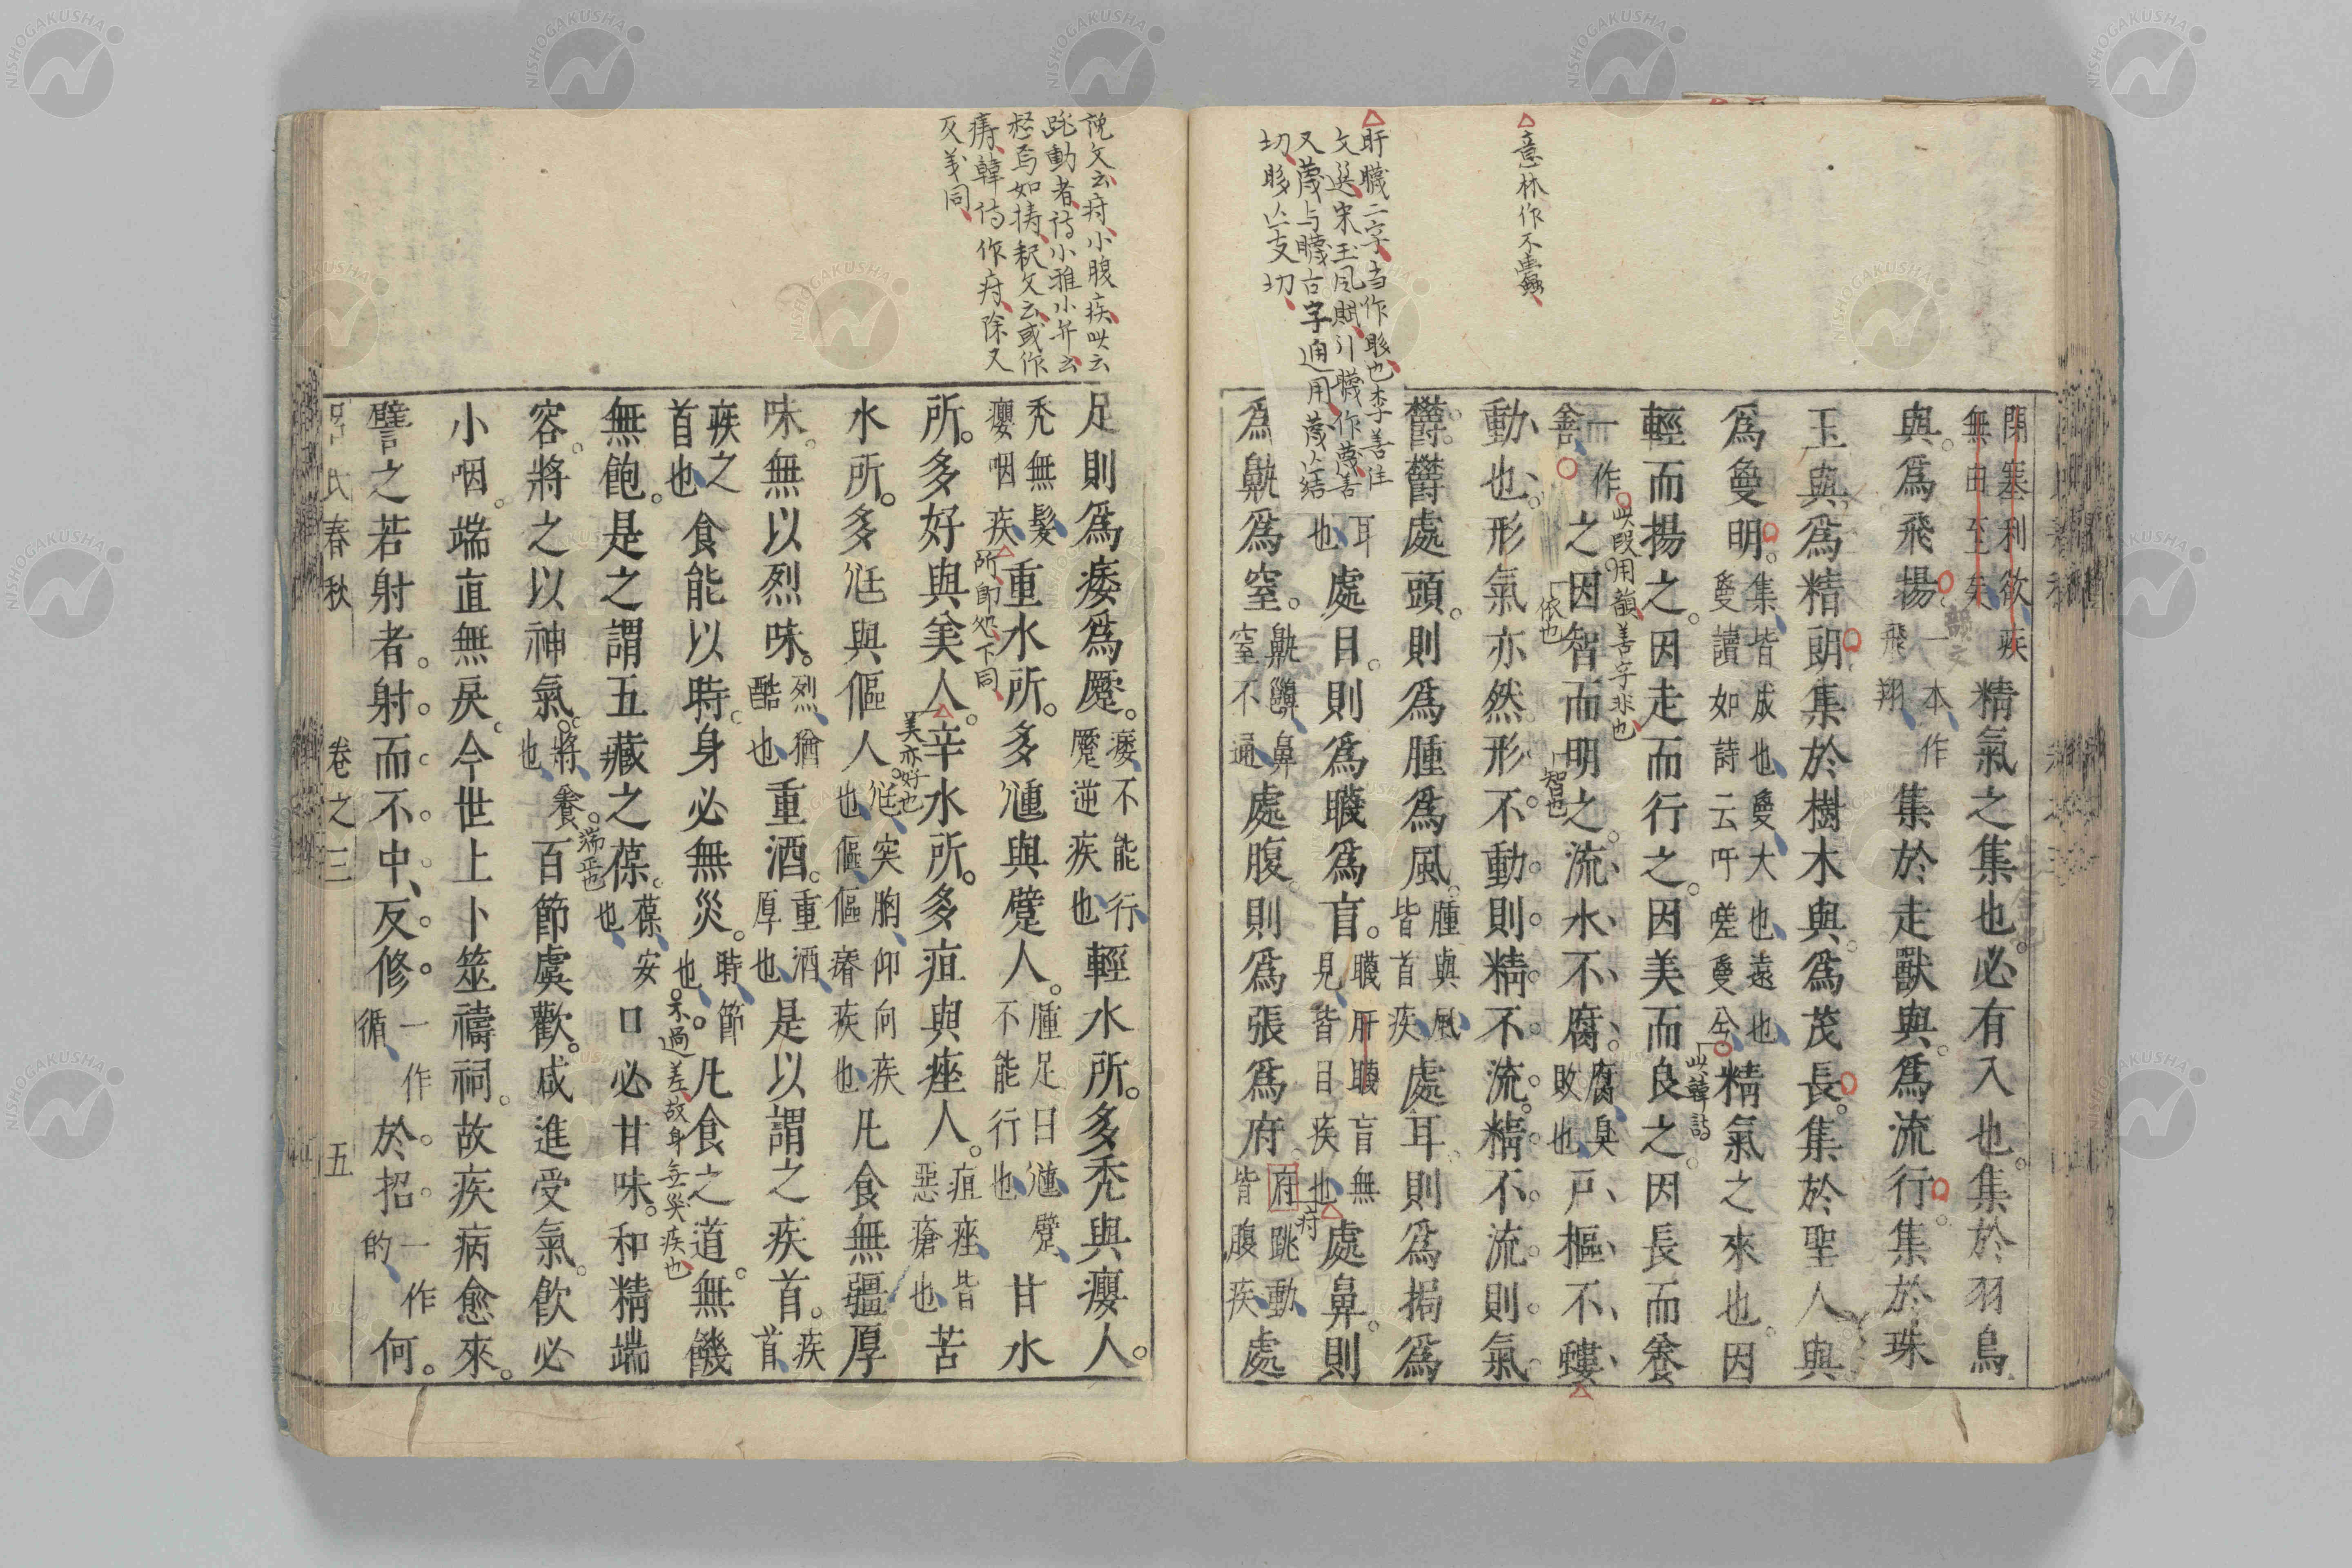 意林作不螻
△盱䁾二字当作眵也李善注
文選宋玉風賦引䁾作蔑善
又蔑与䁾古字通用蔑亾結
切眵亾支切
閉塞利欲疾
無由至矣
精氣之集也必有入也集於羽鳥
與爲飛揚一本作飛翔集於走獸與爲流行集於珠
玉與爲精朗集於樹木與爲茂長集於聖人與
爲敻明集皆成也敻大也遠也敻讀如詩云吁嗟敻兮精氣之來也因
此韓詩
輕而揚之因走而行之因美而良之因長而養
此段用韻善字非也
一作善之因智而明之流水不腐腐臭敗也戶樞不螻
依也
智也
動也形氣亦然形不動則精不流精不流則氣
鬱鬱處頭則爲腫爲風腫與風皆首疾處耳則爲挶爲
耳也處目則爲䁾爲盲䁾肝䁾盲無見皆目疾也處鼻則
爲鼽爲窒鼽齆鼻窒不通處腹則爲張爲府府跳動皆腹疾處
疛
說文云疛小腹疾吰云
跳動者詩小雅小弁云
怒焉如擣釈文云或作
𤻮韓詩作疛除又
反義同
足則爲痿爲蹷痿不能行蹷逆疾也輕水所多禿與癭人
禿無髮癭咽疾重水所多尰與躄人腫足曰尰躄不能行也甘水
所即処下同
所多好與美人辛水所多疽與痤人疽痤皆惡瘡也苦
美亦好也
水所多尪與傴人尪突胸仰向疾也傴傴瘠疾也凡食無彊厚
味無以烈味烈猶酷也重酒重酒厚也是以謂之疾首疾首
疾之首也食能以時身必無災時節也凡食之道無饑
不過差故身無災疾也
無飽是之謂五藏之葆葆安也口必甘味和精端
容將之以神氣將養也百節虞歡咸進受氣飲必
端正也
小咽端直無戾今世上卜筮禱祠故疾病愈來
譬之若射者射而不中反修一作循於招一作的何
呂氏春秋 卷之三 五